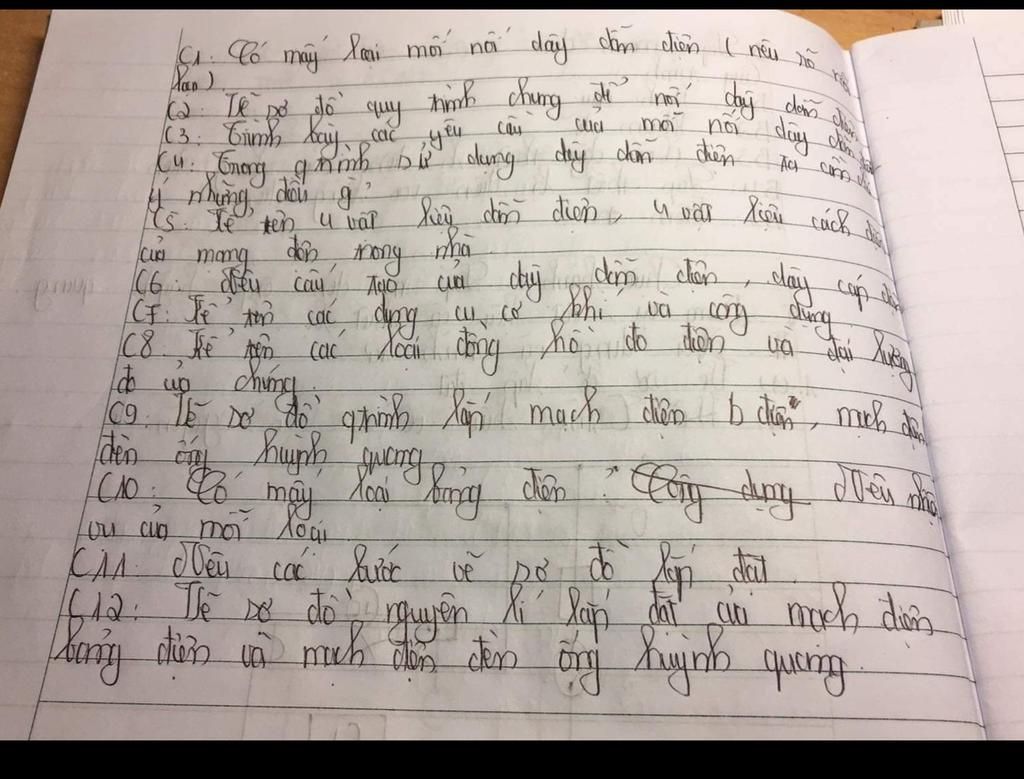 C1: Có mấy loại mối nối dây dẫn điện (nêu rõ
loại)
C2: Vẽ sơ đồ quy trình chung để nối dây dẫn điện
C3: Trình bày các yêu cầu của mối nối dây dẫn điện
C4: Trong qtrình sử dụng dây dẫn điện ta cần chú
ý những điều gì?
C5: Kể tên 4 vật liệu dẫn điện, 4 vật liệu cách điện
của mạng điện trong nhà
C6: Nêu cấu tạo của dây dẫn điện, dây cáp điện
C7: Kể tên các dụng cụ cơ khí và công dụng
C8: Kể tên các loại đồng hồ đo điện và đại lượng
đo của chúng.
C9: Vẽ sơ đồ qtrình lắp mạch điện b điện, mạch điện
đèn ống huỳnh quang
C10: Có mấy loại bảng điện? Công dụng Nêu nhiệm
vụ của mỗi loại
C11: Nêu các bước vẽ sơ đồ lắp đặt
C12: Vẽ sơ đồ nguyên lí lắp đặt của mạch điện
bảng điện và mạch điện đèn ống huỳnh quang.